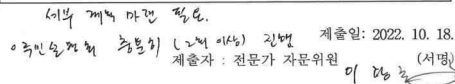 세부 계획 마련 필요.
주민설명회 충분히 (2회 이상) 진행
제출일: 2022. 10. 18.
제출자 : 전문가 자문위원
(서명)